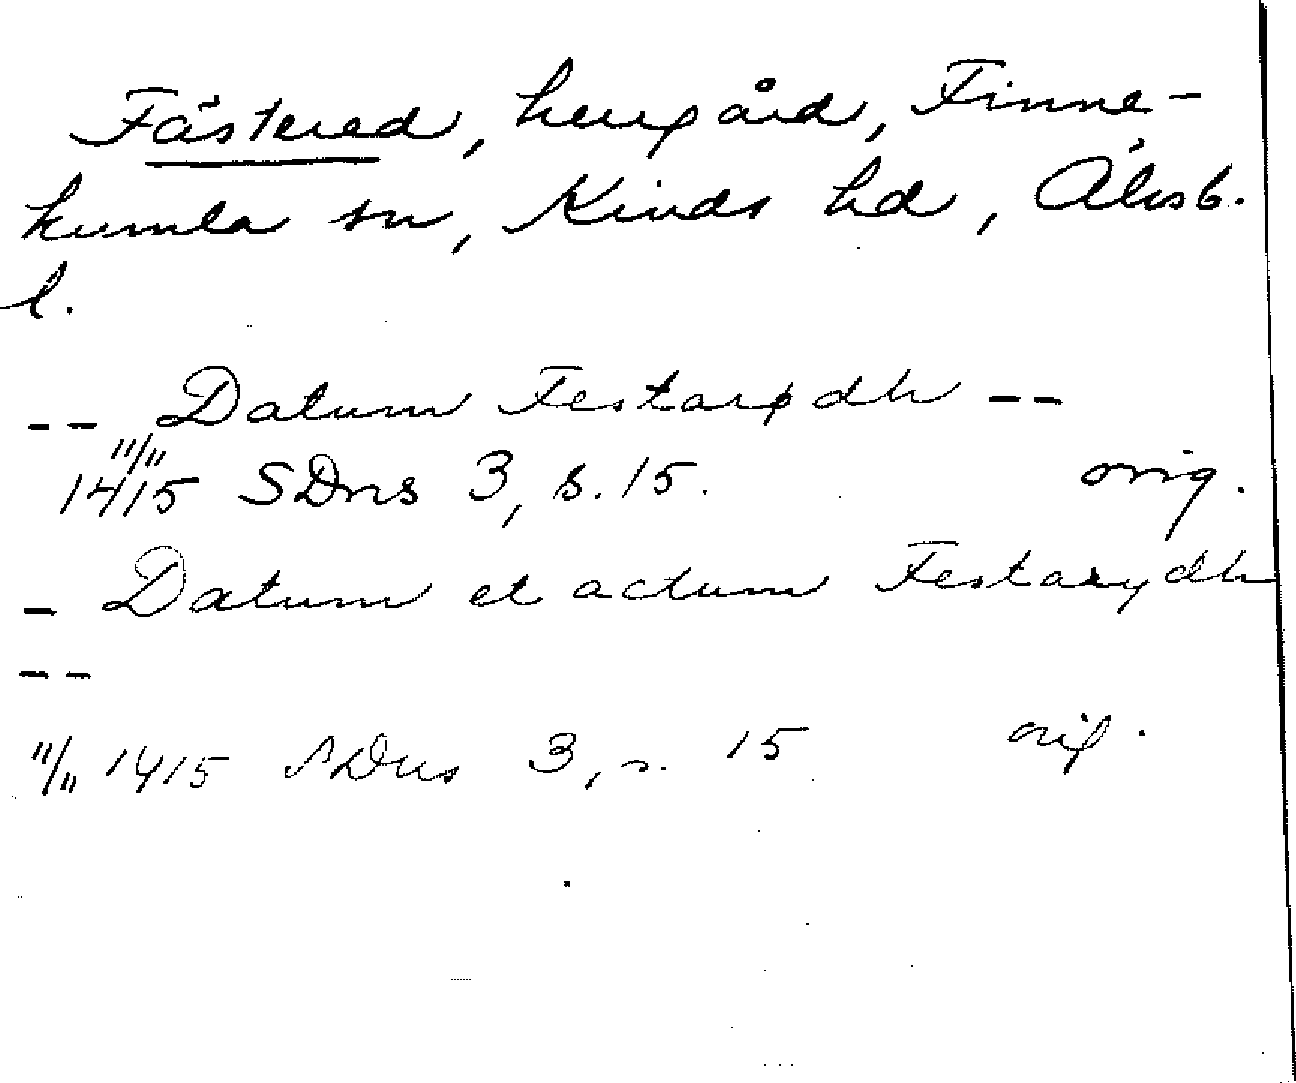 Fästered, herrgård, Finne-
kumla sn, Kinds hd, Älvsb.
l.
-- Datum Festarydh --
11/11
1415 SDns 3, s. 15. orig.
- Datum et actum Festarydh
--
11/11 1415 SDns 3, s. 15 orig.